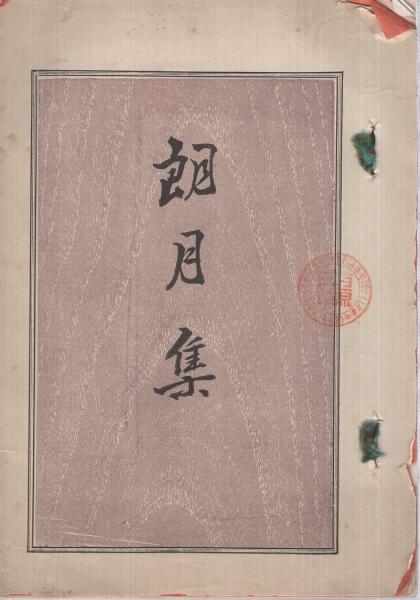 朗月集